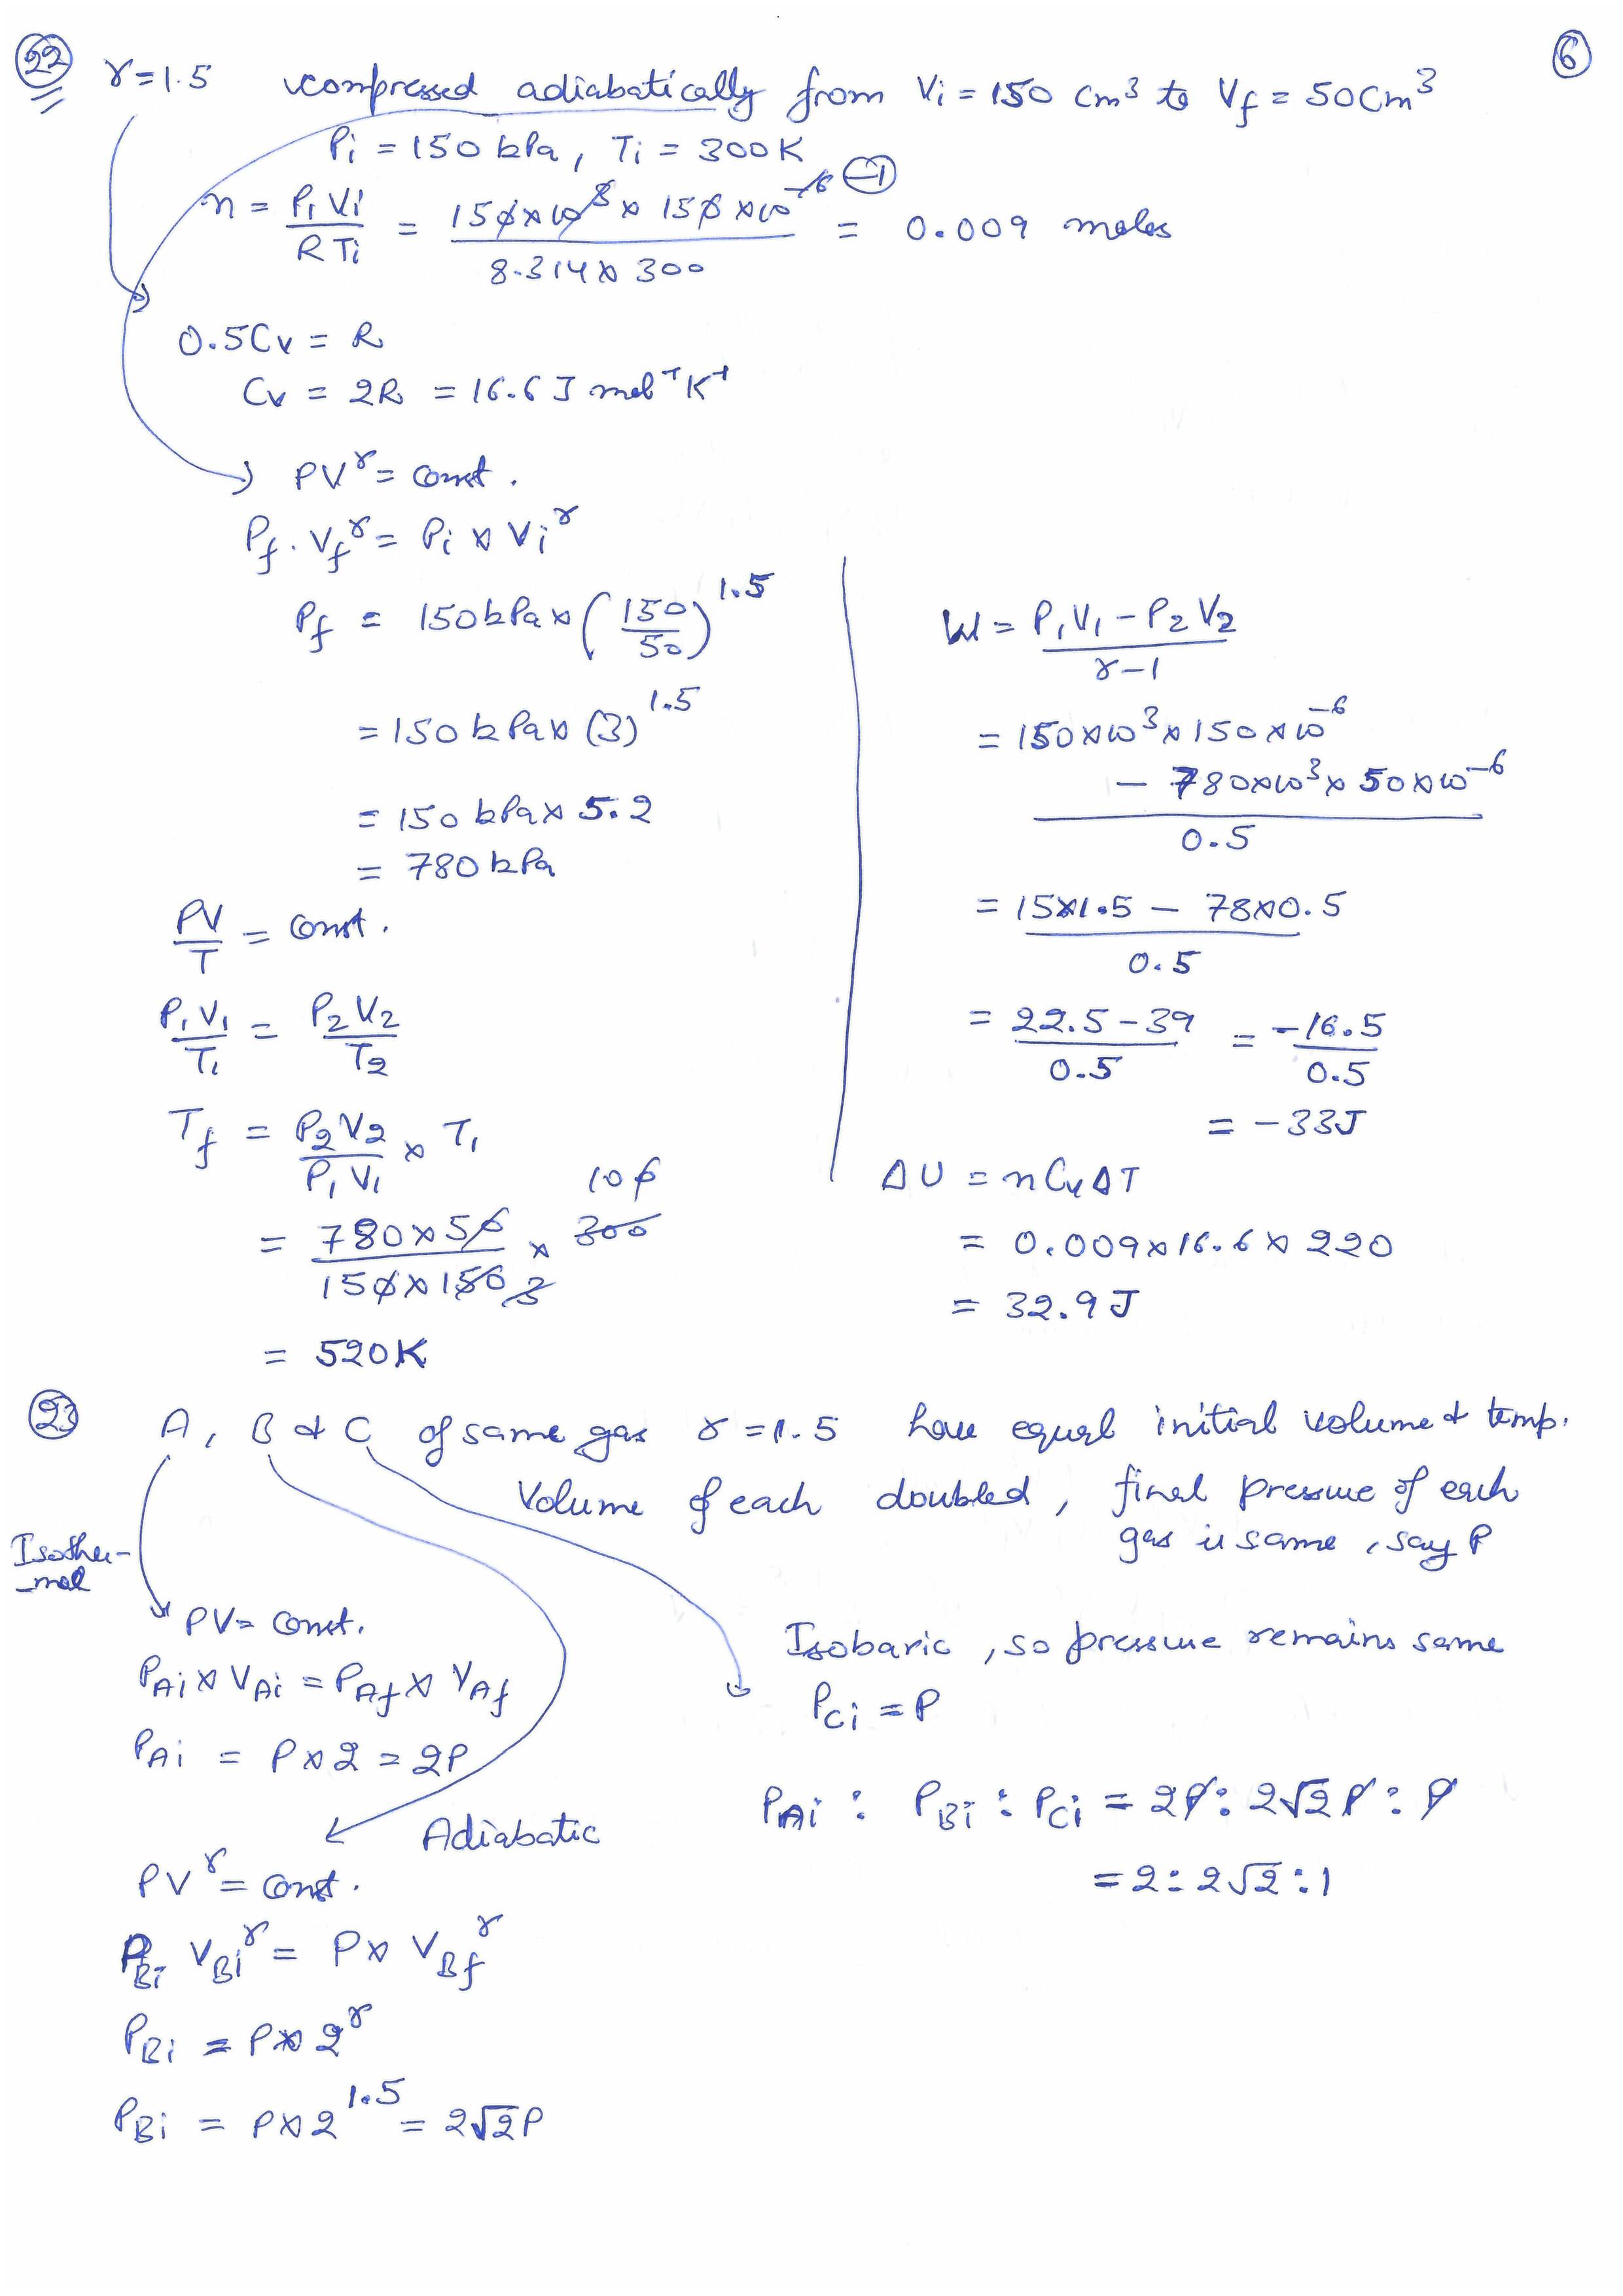 (22) γ=1.5 compressed adiabatically from Vi = 150 cm³ to Vf = 50cm³ (6)
Pi = 150 kPa, Ti = 300K
n = P₁Vi/RTi = 150×10³ × 150×10⁻⁶ (-1)/8.314×300 = 0.009 moles
0.5Cv = R
Cv = 2R = 16.6 J mol⁻¹K⁻¹
PV^γ = const.
Pf . Vf^γ = Pi × Vi^γ
Pf = 150kPa × (150/50)^1.5
= 150 kPa × (3)^1.5
= 150 kPa × 5.2
= 780 kPa
PV/T = const.
P₁V₁/T₁ = P₂V₂/T₂
Tf = P₂V₂/P₁V₁ × T₁
= 780×50/150×150 3 × 300 100
= 520K
W = P₁V₁ – P₂V₂/γ–1
= 150×10³×150×10⁻⁶
– 780×10³×50×10⁻⁶
0.5
= 15×1.5 – 78×0.5/0.5
= 22.5–39/0.5 = –16.5/0.5
= –33J
ΔU = nCvΔT
= 0.009×16.6×220
= 32.9 J
(23) A, B & C of same gas γ=1.5 have equal initial volume & temp.
Volume of each doubled, final pressure of each
gas is same, say P
Isother-
-mal
PV = const.
PAi × VAi = PAf × VAf
PAi = P×2 = 2P
Adiabatic
PV^γ = const.
PBi VBi^γ = P× VBf^γ
PBi = P×2^γ
PBi = P×2^1.5 = 2√2P
Isobaric, so pressure remains same
PCi = P
PAi : PBi : PCi = 2P : 2√2P : P
= 2 : 2√2 : 1